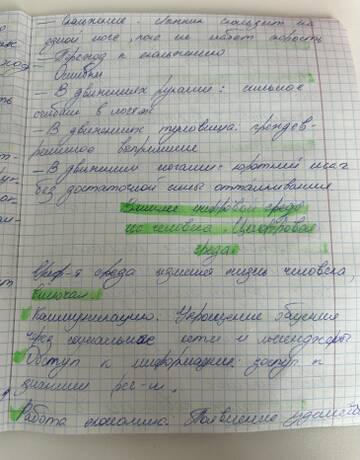 — Скольжение: лыжник скользит на
одной ноге, пока не
— Переход к скольжению
Ошибки
— В движениях руками: сильное
сгибание в локтях
— В движениях туловища: преждев-
ременное выпрямление
— В движении ногами: короткий шаг
без достаточной силы отталкивания
Влияние цифровой среды
на человека. Цифровая
среда
Циф-я среда изменила жизнь человека,
включая
Коммуникацию: Упрощение общения
через социальные сети и мессенджеры
Доступ к информации: доступ к
знаниям
Работа экономика: Появление удалён